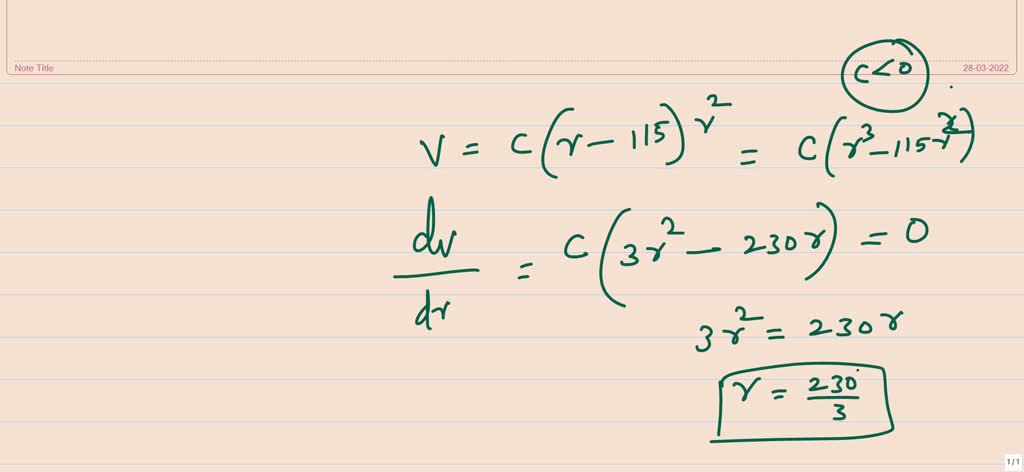 Note Title
28-03-2022
c<0
V = c(r-115)r² = c(r³-115r²)
dv/dr = c(3r² - 230r) = 0
3r² = 230r
r = 230/3
1/1